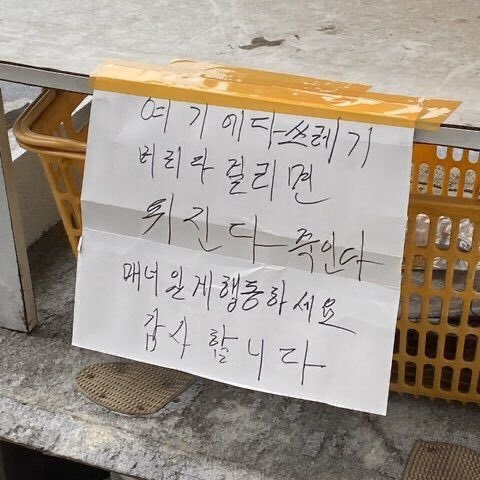 여기에다 쓰레기
버리다 걸리면
뒤진다 죽인다
매너있게 행동하세요
감사합니다